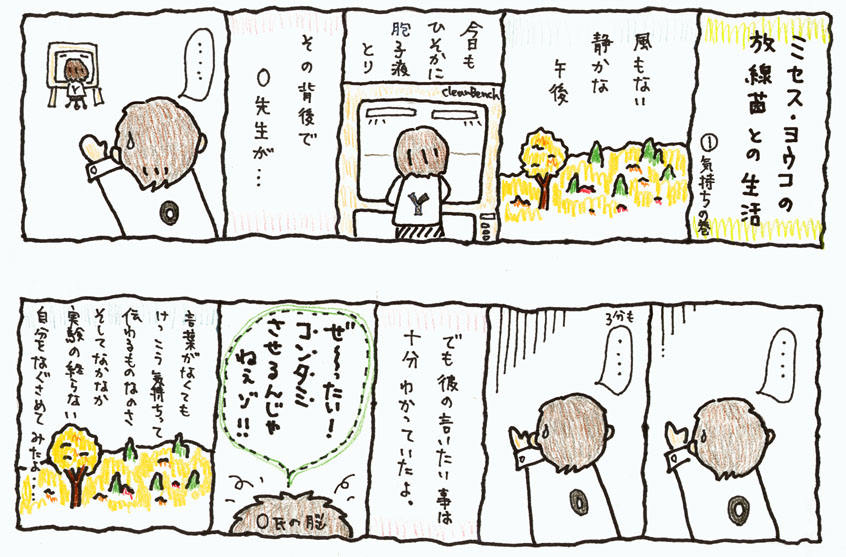 ミセス・ヨウコの
放線菌との生活
①気持ちの巻
風もない
静かな
午後
今日も
ひそかに
胞子液
とり
CleanBench
Y
その背後で
O先生が…
・・・・
O
・・・・
O
3分も
・・・・
O
でも彼の言いたい事は
十分わかっていたよ。
ぜ〜ったい!
コンタミ
させるんじゃ
ねぇゾ!!
O氏の脳
言葉がなくても
けっこう気持ちって
伝わるものなのさ
そしてなかなか
実験の終らない
自分をなぐさめてみたよ……